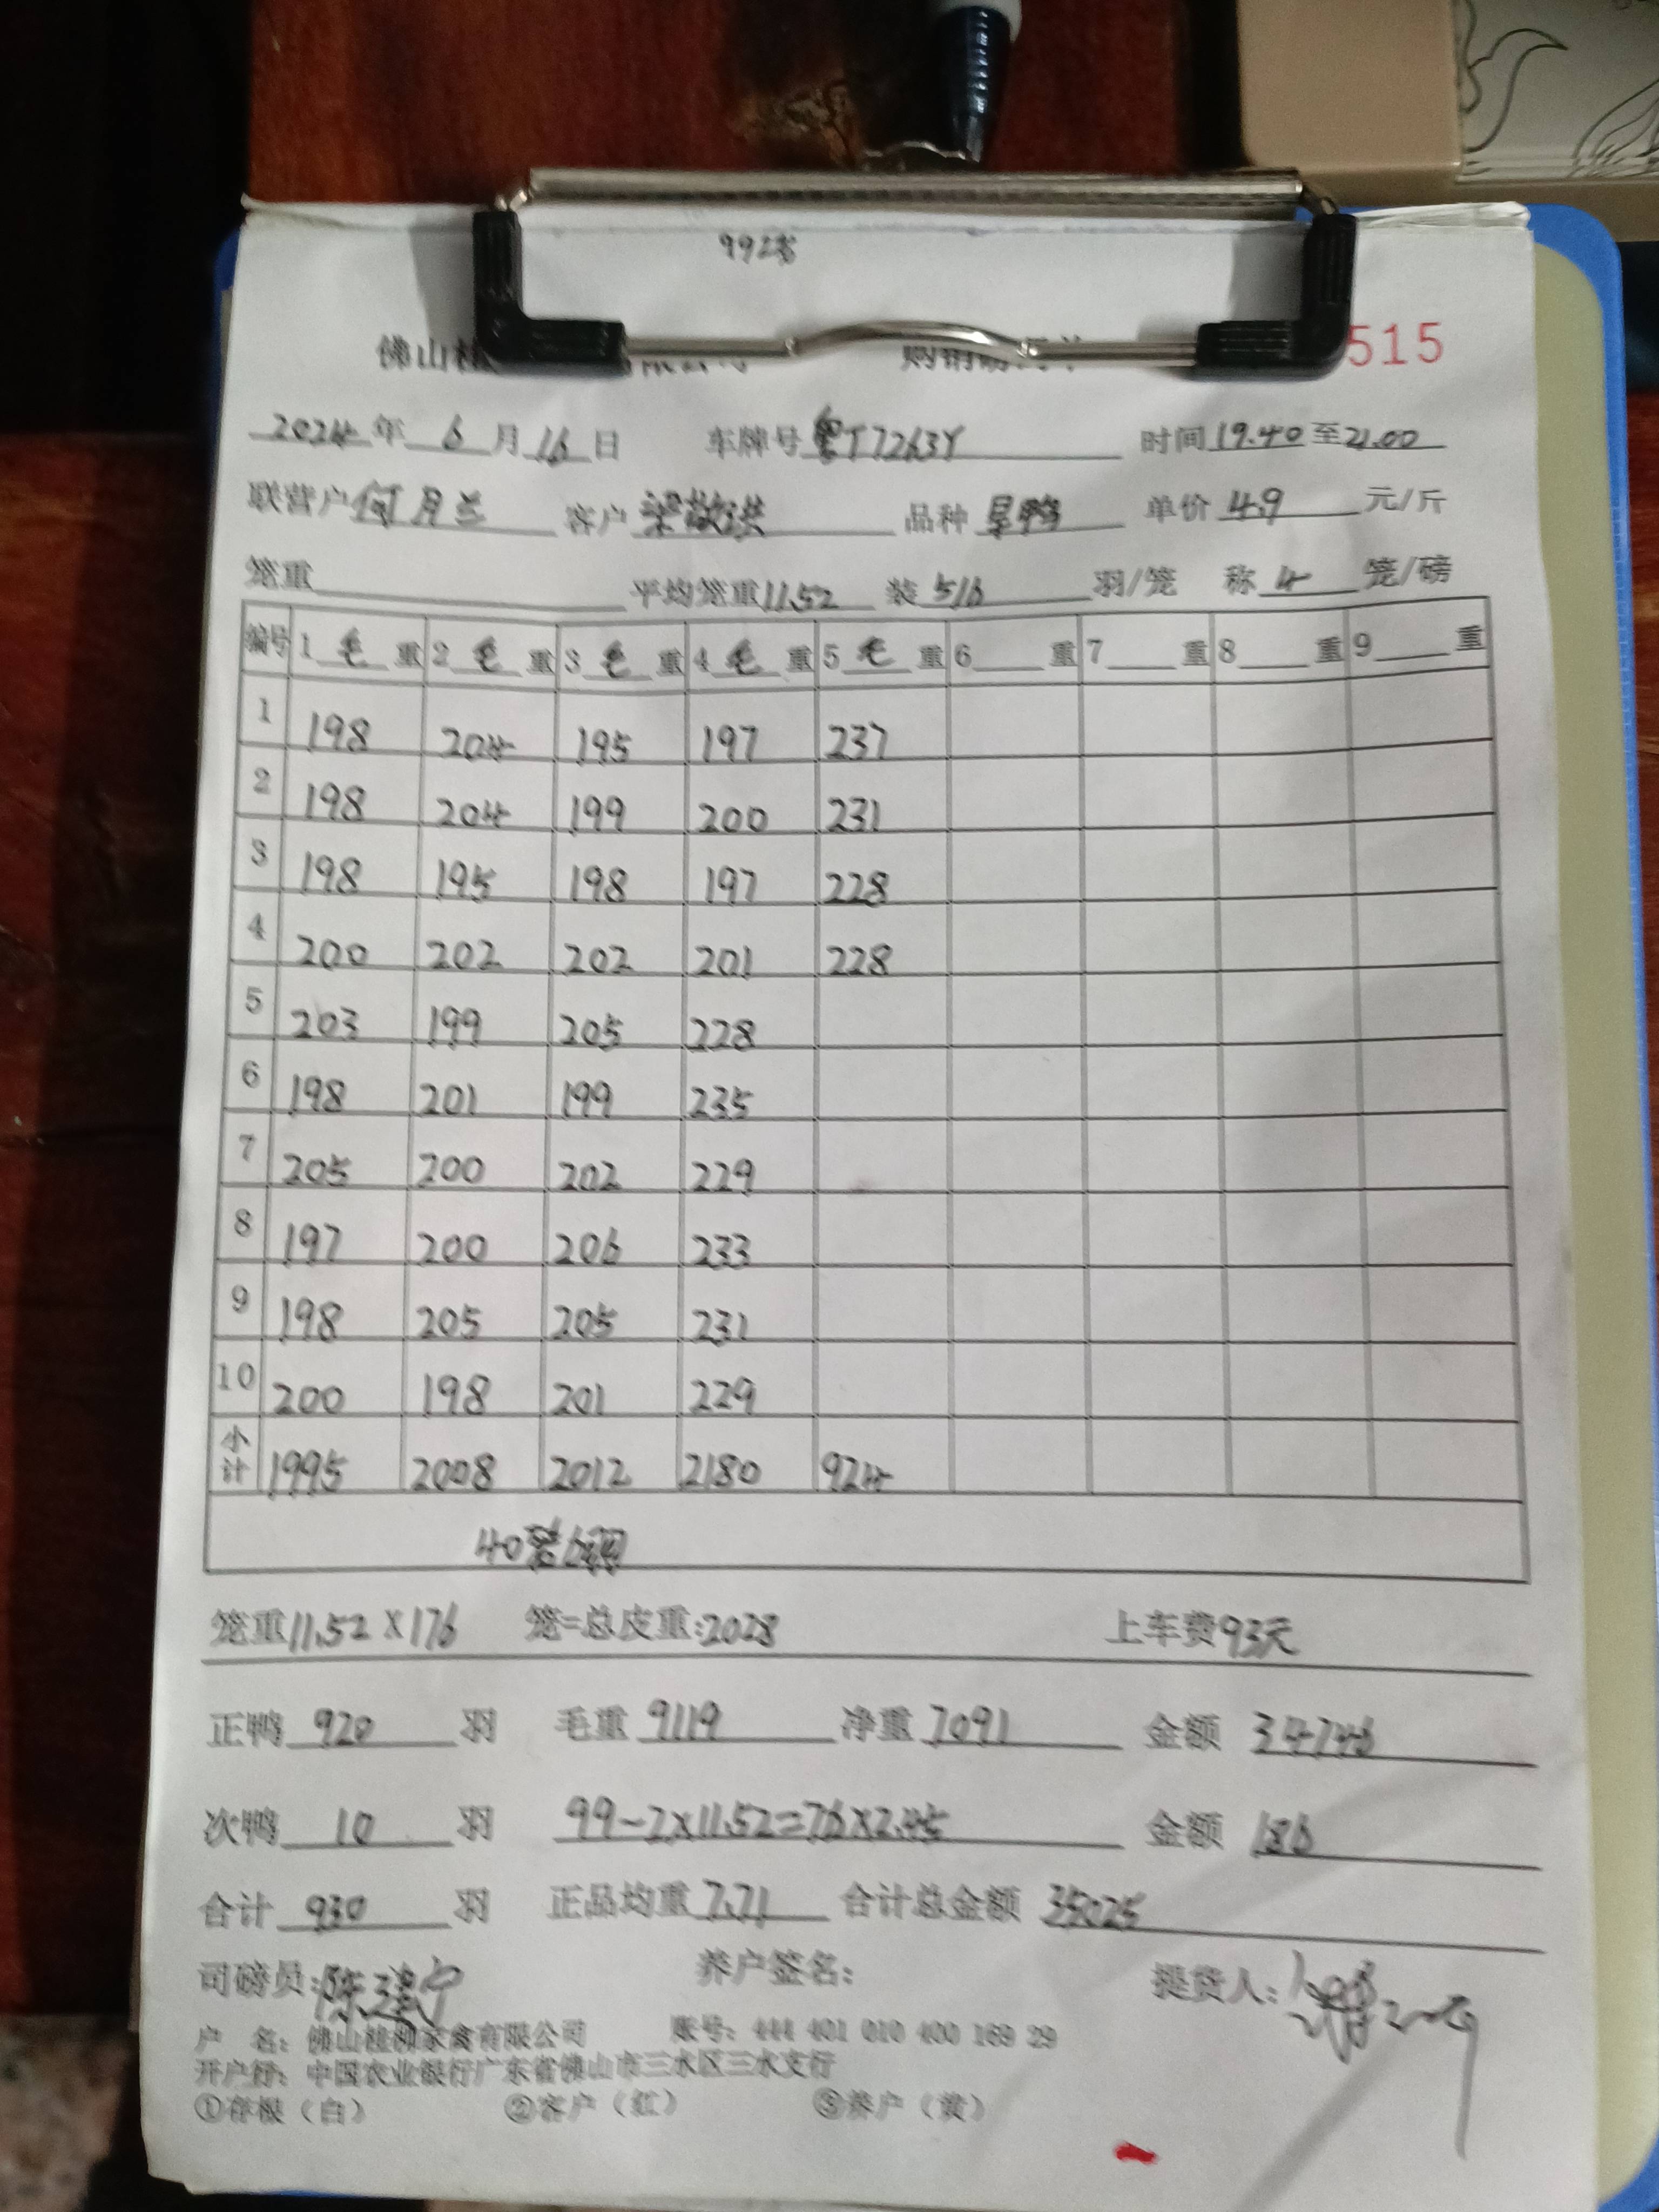 992羽
佛山桂 515
2024年 6 月 16 日 车牌号 粤T7263Y 时间 19.40 至 21.00
联营户 何月兰 客户 梁敬洪 品种 旱鸭 单价 4.9 元/斤
笼重 平均笼重 11.52 装 5/6 羽/笼 称 4 笼/磅
编号 1 毛 重 2 毛 重 3 毛 重 4 毛 重 5 毛 重 6 重 7 重 8 重 9 重
1 198 204 195 197 237
2 198 204 199 200 231
3 198 195 198 197 228
4 200 202 202 201 228
5 203 199 205 228
6 198 201 199 235
7 205 200 202 229
8 197 200 206 233
9 198 205 205 231
10 200 198 201 229
小计 1995 2008 2012 2180 924
40
笼重 11.52 X 176 笼=总皮重: 2028 上车费 93元
正鸭 920 羽 毛重 9119 净重 7091 金额 34746
次鸭 10 羽 99-2×11.52=76×2.45 金额 186
合计 930 羽 正品均重 7.71 合计总金额 35025
司磅员: 陈建宁 养户签名: 提货人:
户 名: 佛山桂柳家禽有限公司 账号: 444 401 010 400 169 29
开户行: 中国农业银行广东省佛山市三水区三水支行
①存根（白） ②客户（红） ③养户（黄）